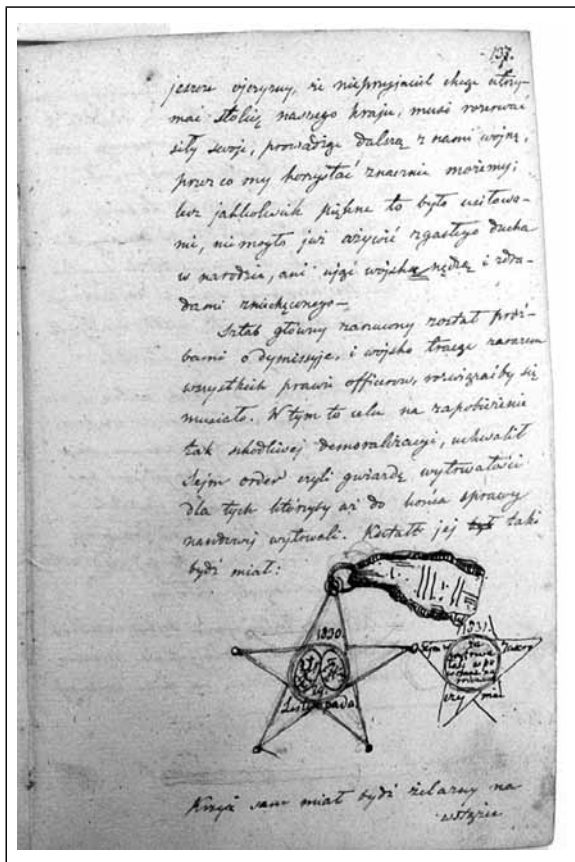 137.
jeszcze ojczyzny, że nieprzyjaciel chcąc utrzy-
mać stolicę naszego kraju, musi rozerwać
siły swoje, prowadząc dalszą z nami wojnę,
przez co my korzystać znacznie możemy;
lecz jakkolwiek piękne to było usiłowa-
nie, nie mogło już ożywić zgasłego ducha
w narodzie, ani ująć wojska nędzą i zdra-
dami zniechęconego –
Sztab główny zarzucony został proź-
bami o dymissyje, i wojsko tracąc zarazem
wszystkich prawie officerow, rozwiązaćby się
musiało. W tym to celu na zapobieżenie
tak szkodliwej demoralizacyi, uchwalił
Sejm order czyli gwiazdę wytrwałości
dla tych którzyby aż do końca sprawy
narodowej wytrwali. Kształt jej był taki
bydź miał:
1830.
29
Listopada
1831.
Sejm w
za
wytrwa
Krzyż sam miał bydź żelazny na
wstążce